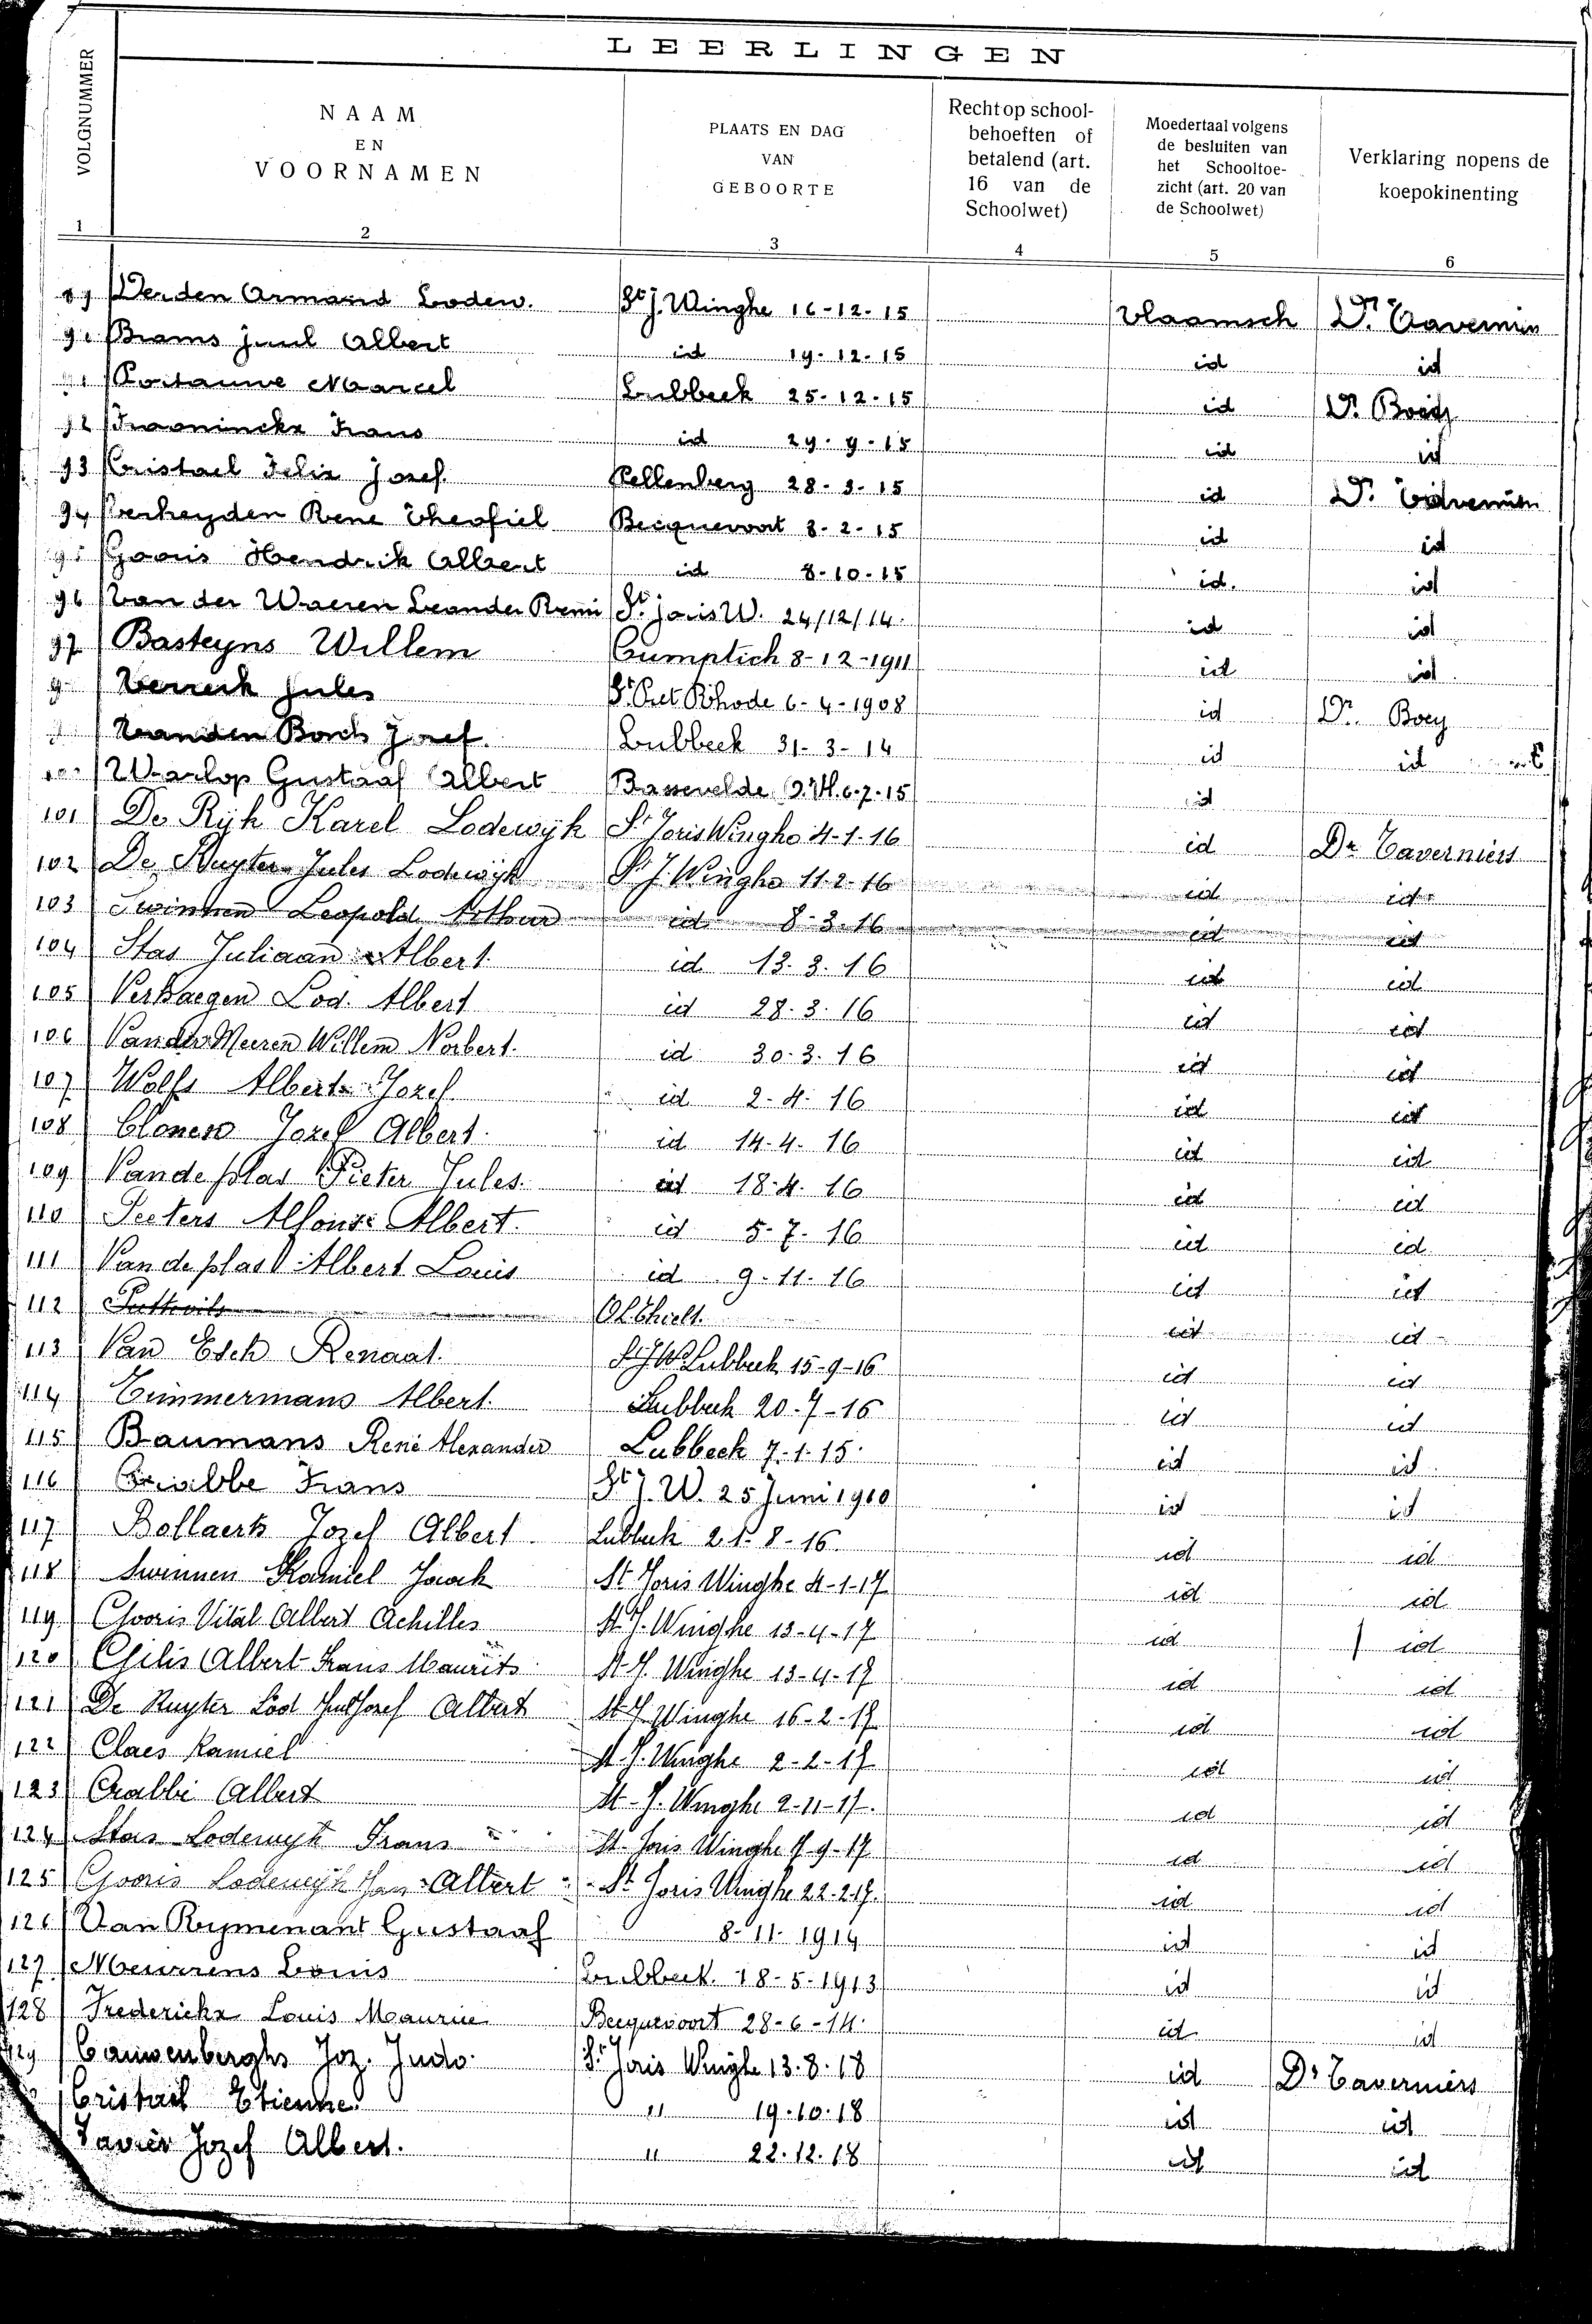 LEERLINGEN
VOLGNUMMER
NAAM EN VOORNAMEN
PLAATS EN DAG VAN GEBOORTE
Recht op school-behoeften of betalend (art. 16 van de Schoolwet)
Moedertaal volgens de besluiten van het Schooltoe-zicht (art. 20 van de Schoolwet)
Verklaring nopens de koepokinenting
1 2 3 4 5 6
Armand Lodew. St J. Winghe 16-12-15 Vlaamsch Dr.
Brams Albert id 19-12-15 id id
Marcel Lubbeek 25-12-15 id Dr.
92 Frans id 29-9-15 id id
93 Cristael Felix Jozef. Pellenberg 28-3-15 id Dr.
94 Verheyden Rene Theofiel Becquevoort 3-2-15 id id
95 Gooris Hendrik Albert id 8-10-15 id. id
96 Van der Waeren Leander Remi St. Joris W. 24/12/14. id id
97 Basteyns Willem Cumptich 8-12-1911 id id
Jules St. Piet Rhode 6-4-1908 id Dr. Boey
Vanden Bosch Jozef. Lubbeek 31-3-14 id id
Warlop Gustaaf Albert Bassevelde O.Vl. 6-7-15 id
101 De Rijk Karel Lodewijk St Joris Winghe 4-1-16 id Dr Taverniers
102 De Ruyter Jules Lodewijk St. J. Winghe 11-2-16 id id
103 Swinnen Leopold Arthur id 8-3-16 id id
104 Stas Juliaan Albert id 13.3.16 id id
105 Verhaegen Lod. Albert id 28.3.16 id id
106 Vander Meeren Willem Norbert. id 30.3.16 id id
107 Wolfs Albert Jozef. id 2-4-16 id id
108 Clonen Jozef Albert. id 14-4-16 id id
109 Vandeplas Pieter Jules. id 18-4-16 id id
110 Peeters Alfons Albert. id 5-7-16 id id
111 Vandeplas Albert Louis id 9-11-16 id id
112 id id
113 Van Esch Renaat. St J W Lubbeek 15-9-16 id id
114 Timmermans Albert. Lubbeek 20-7-16 id id
115 Baumans René Alexander Lubbeek 7-1-15. id id
116 Crabbe Frans St J. W. 25 Juni 1910 id id
117 Bollaerts Jozef Albert. Lubbeek 21-8-16. id id
118 Swinnen Kamiel Jacob St Joris Winghe 4-1-17 id id
119 Gooris Vital Albert Achilles St J. Winghe 13-4-17 id id
120 Gilis Albert Frans Maurits St J. Winghe 13-4-17 id id
121 De Ruyter Lod Jozef Albert St J Winghe 16-2-17 id id
122 Claes Kamiel St. J. Winghe 2-2-17 id id
123 Crabbé Albert St. J. Winghe 2-11-17. id id
124 Stas Lodewijk Frans St. Joris Winghe 7-9-17 id id
125 Gooris Lodewijk Albert St Joris Winghe 22-2-17. id id
126 Van Rymenant Gustaaf 8-11-1914 id id
127 Meurrens Louis Lubbeek. 18-5-1913 id id
128 Frederickx Louis Maurice Becquevoort 28-6-14. id id
129 Cauwenberghs Joz. Judo. St. Joris Winghe 13.8.18 id Dr Taverniers
Cristael Etienne " 19.10.18 id id
Xavier Jozef Albert. " 22.12.18 id id